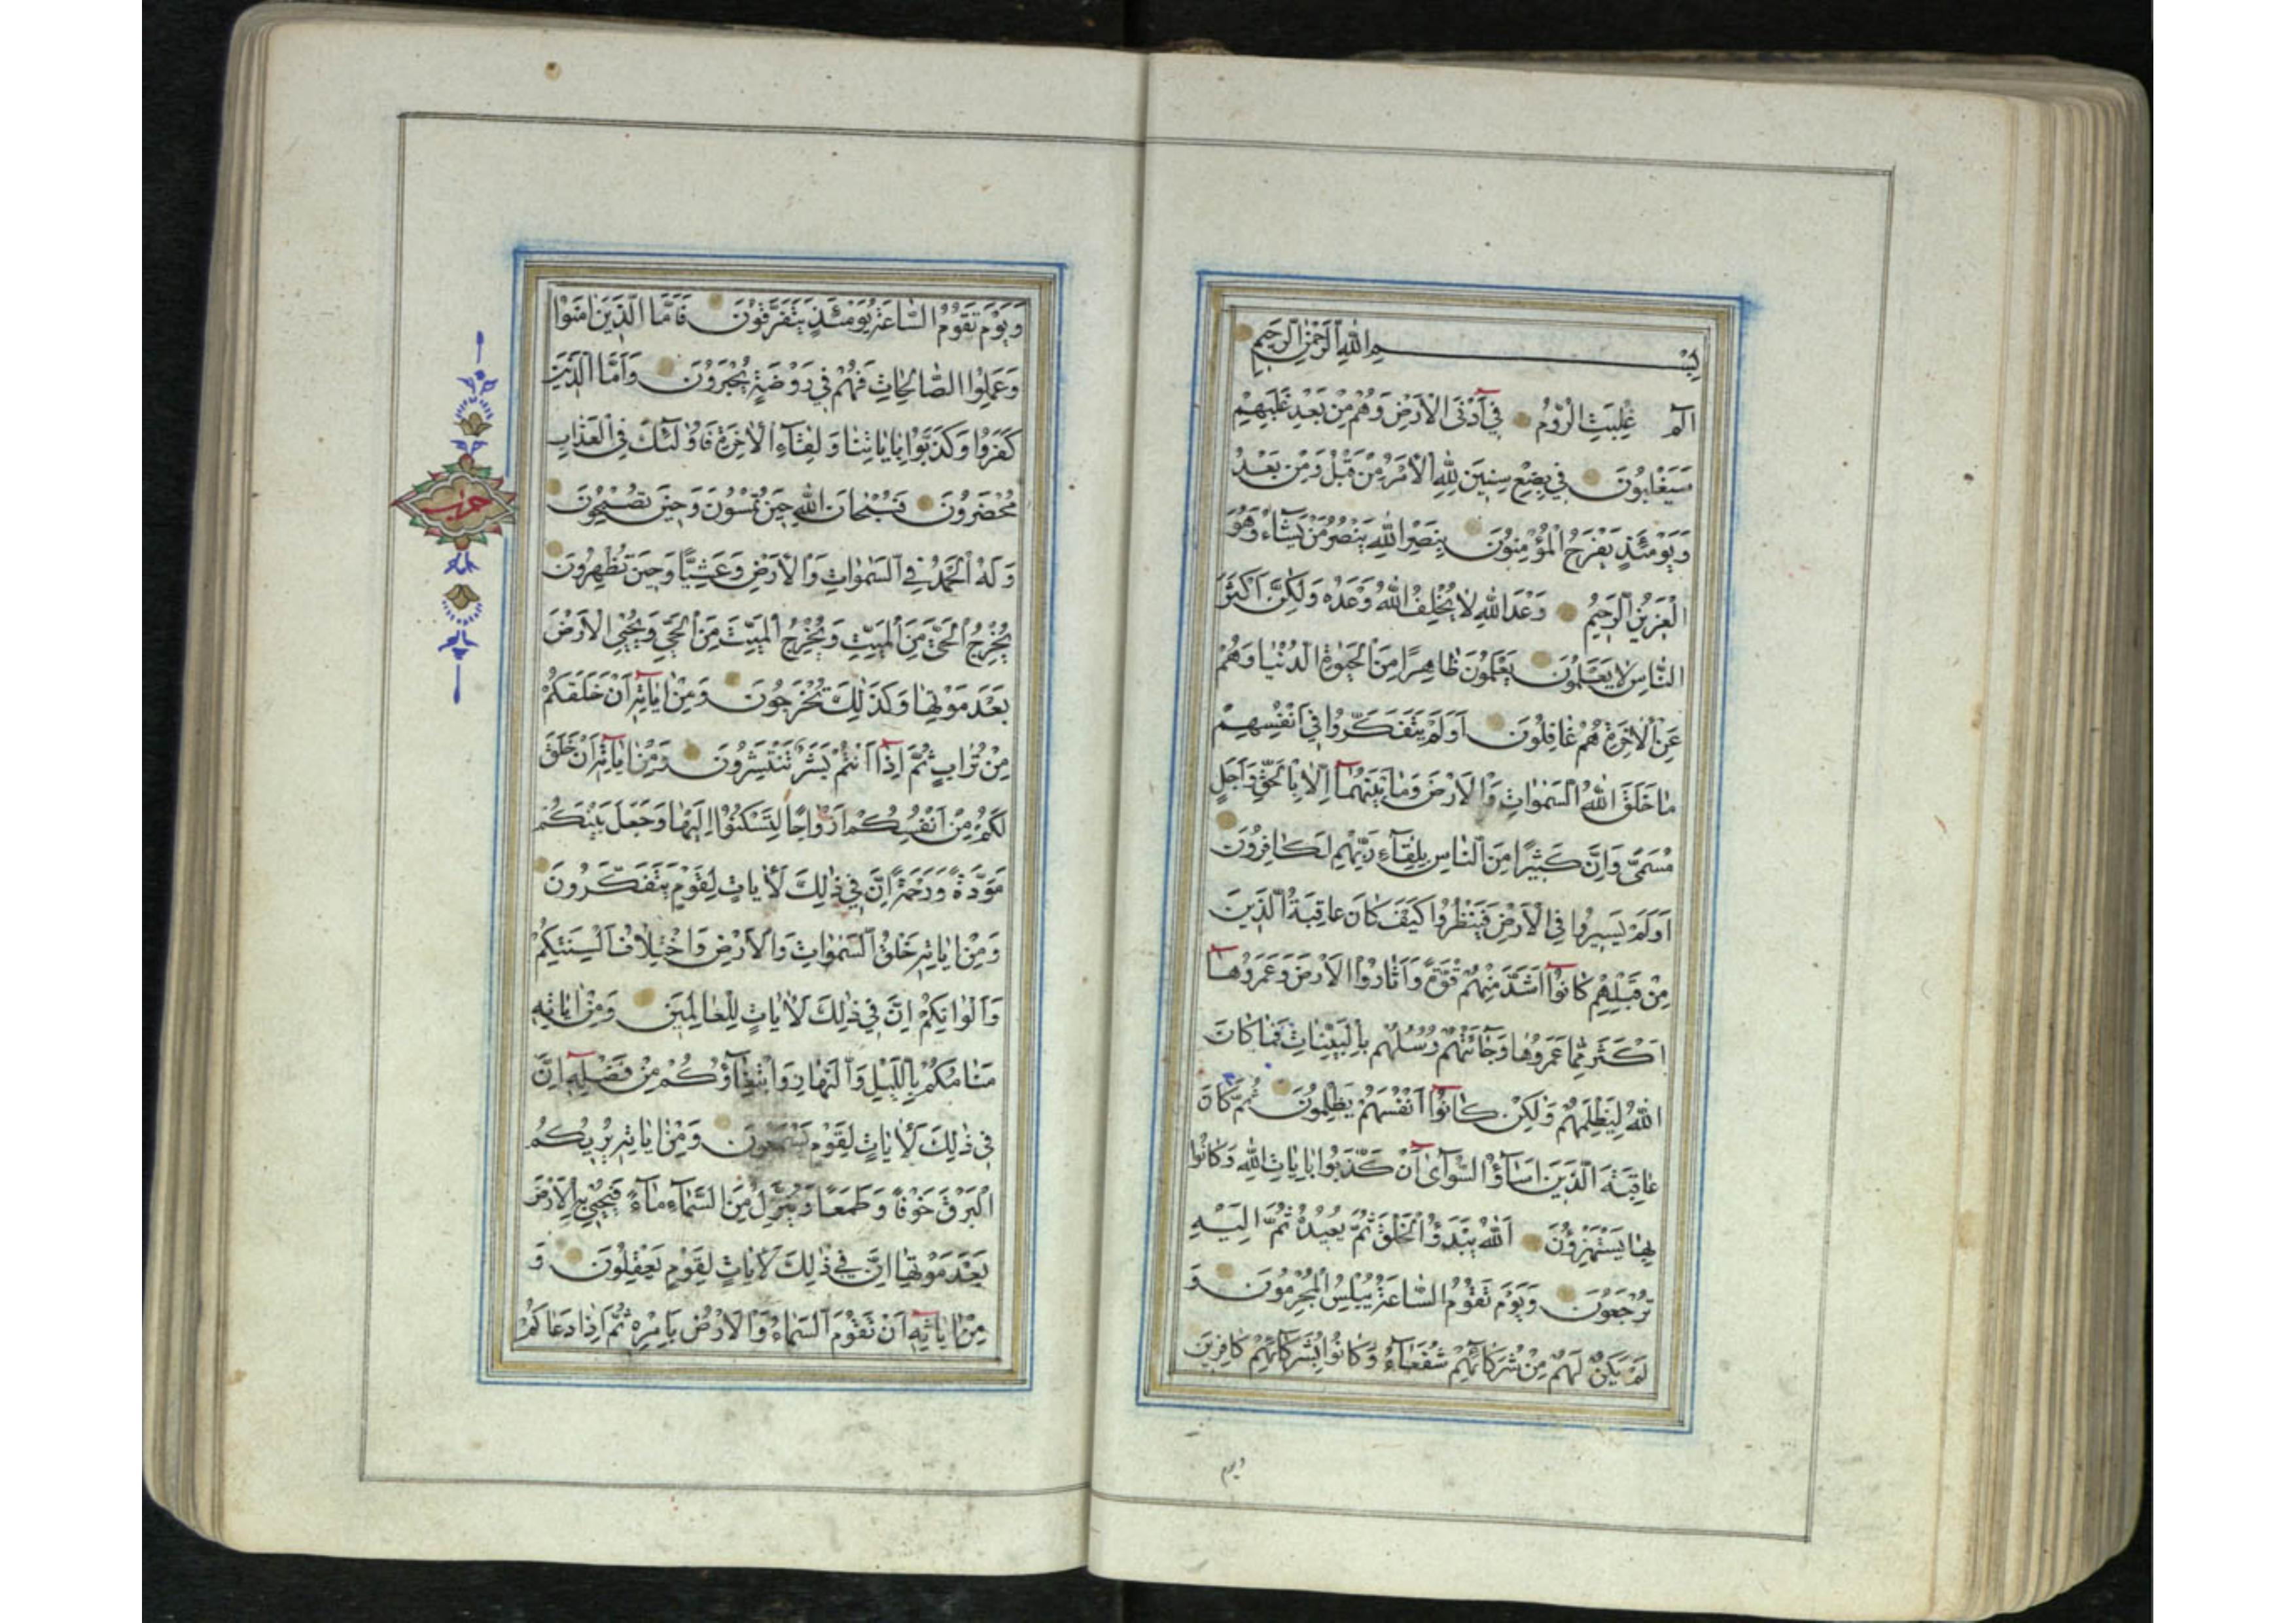 بِسْمِ اللّٰهِ الرَّحْمٰنِ الرَّحِيمِ
الٓمٓ غُلِبَتِ الرُّومُ فِي أَدْنَى الْأَرْضِ وَهُمْ مِنْ بَعْدِ غَلَبِهِمْ
سَيَغْلِبُونَ فِي بِضْعِ سِنِينَ لِلّٰهِ الْأَمْرُ مِنْ قَبْلُ وَمِنْ بَعْدُ
وَيَوْمَئِذٍ يَفْرَحُ الْمُؤْمِنُونَ بِنَصْرِ اللّٰهِ يَنْصُرُ مَنْ يَشَاءُ وَهُوَ
الْعَزِيزُ الرَّحِيمُ وَعْدَ اللّٰهِ لَا يُخْلِفُ اللّٰهُ وَعْدَهُ وَلٰكِنَّ أَكْثَرَ
النَّاسِ لَا يَعْلَمُونَ يَعْلَمُونَ ظَاهِرًا مِنَ الْحَيٰوةِ الدُّنْيَا وَهُمْ
عَنِ الْاٰخِرَةِ هُمْ غَافِلُونَ أَوَلَمْ يَتَفَكَّرُوا فِي أَنْفُسِهِمْ
مَا خَلَقَ اللّٰهُ السَّمٰوَاتِ وَالْأَرْضَ وَمَا بَيْنَهُمَا إِلَّا بِالْحَقِّ وَأَجَلٍ
مُسَمًّى وَإِنَّ كَثِيرًا مِنَ النَّاسِ بِلِقَاءِ رَبِّهِمْ لَكَافِرُونَ
أَوَلَمْ يَسِيرُوا فِي الْأَرْضِ فَيَنْظُرُوا كَيْفَ كَانَ عَاقِبَةُ الَّذِينَ
مِنْ قَبْلِهِمْ كَانُوا أَشَدَّ مِنْهُمْ قُوَّةً وَأَثَارُوا الْأَرْضَ وَعَمَرُوهَا
أَكْثَرَ مِمَّا عَمَرُوهَا وَجَاءَتْهُمْ رُسُلُهُمْ بِالْبَيِّنَاتِ فَمَا كَانَ
اللّٰهُ لِيَظْلِمَهُمْ وَلٰكِنْ كَانُوا أَنْفُسَهُمْ يَظْلِمُونَ ثُمَّ كَانَ
عَاقِبَةَ الَّذِينَ أَسَاؤُا السُّوآٰى أَنْ كَذَّبُوا بِاٰيَاتِ اللّٰهِ وَكَانُوا
بِهَا يَسْتَهْزِؤُنَ اَللّٰهُ يَبْدَؤُا الْخَلْقَ ثُمَّ يُعِيدُهُ ثُمَّ إِلَيْهِ
تُرْجَعُونَ وَيَوْمَ تَقُومُ السَّاعَةُ يُبْلِسُ الْمُجْرِمُونَ وَ
لَمْ يَكُنْ لَهُمْ مِنْ شُرَكَائِهِمْ شُفَعَاءُ وَكَانُوا بِشُرَكَائِهِمْ كَافِرِينَ
ويوم
وَيَوْمَ تَقُومُ السَّاعَةُ يَوْمَئِذٍ يَتَفَرَّقُونَ فَأَمَّا الَّذِينَ اٰمَنُوا
وَعَمِلُوا الصَّالِحَاتِ فَهُمْ فِي رَوْضَةٍ يُحْبَرُونَ وَأَمَّا الَّذِينَ
كَفَرُوا وَكَذَّبُوا بِاٰيَاتِنَا وَلِقَاءِ الْاٰخِرَةِ فَأُولٰئِكَ فِي الْعَذَابِ
مُحْضَرُونَ فَسُبْحَانَ اللّٰهِ حِينَ تُمْسُونَ وَحِينَ تُصْبِحُونَ
وَلَهُ الْحَمْدُ فِي السَّمٰوَاتِ وَالْأَرْضِ وَعَشِيًّا وَحِينَ تُظْهِرُونَ
يُخْرِجُ الْحَيَّ مِنَ الْمَيِّتِ وَيُخْرِجُ الْمَيِّتَ مِنَ الْحَيِّ وَيُحْيِي الْأَرْضَ
بَعْدَ مَوْتِهَا وَكَذٰلِكَ تُخْرَجُونَ وَمِنْ اٰيَاتِهِ أَنْ خَلَقَكُمْ
مِنْ تُرَابٍ ثُمَّ إِذَا أَنْتُمْ بَشَرٌ تَنْتَشِرُونَ وَمِنْ اٰيَاتِهِ أَنْ خَلَقَ
لَكُمْ مِنْ أَنْفُسِكُمْ أَزْوَاجًا لِتَسْكُنُوا إِلَيْهَا وَجَعَلَ بَيْنَكُمْ
مَوَدَّةً وَرَحْمَةً إِنَّ فِي ذٰلِكَ لَاٰيَاتٍ لِقَوْمٍ يَتَفَكَّرُونَ
وَمِنْ اٰيَاتِهِ خَلْقُ السَّمٰوَاتِ وَالْأَرْضِ وَاخْتِلَافُ أَلْسِنَتِكُمْ
وَأَلْوَانِكُمْ إِنَّ فِي ذٰلِكَ لَاٰيَاتٍ لِلْعَالِمِينَ وَمِنْ اٰيَاتِهِ
مَنَامُكُمْ بِاللَّيْلِ وَالنَّهَارِ وَابْتِغَاؤُكُمْ مِنْ فَضْلِهِ إِنَّ
فِي ذٰلِكَ لَاٰيَاتٍ لِقَوْمٍ يَسْمَعُونَ وَمِنْ اٰيَاتِهِ يُرِيكُمُ
الْبَرْقَ خَوْفًا وَطَمَعًا وَيُنَزِّلُ مِنَ السَّمَاءِ مَاءً فَيُحْيِي بِهِ الْأَرْضَ
بَعْدَ مَوْتِهَا إِنَّ فِي ذٰلِكَ لَاٰيَاتٍ لِقَوْمٍ يَعْقِلُونَ وَ
مِنْ اٰيَاتِهِ أَنْ تَقُومَ السَّمَاءُ وَالْأَرْضُ بِأَمْرِهِ ثُمَّ إِذَا دَعَاكُمْ
حزب